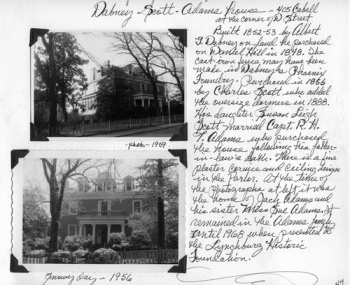 Dabney-Scott-Adams House - 405 Cabell
at the corner of D Street
Built 1852-53 by Albert
G. Dabney on land he purchased
on Daniel's Hill in 1848. The
cast iron fence may have been
made in Dabney's Phoenix
Foundry. Purchased in 1866
by Charles Scott who added
the oversize dormers in 1888.
His daughter Susan Leigh
Scott married Capt. R. H.
T. Adams who purchased
the house following his father-
in-law's death. There is a fine
plaster cornice and ceiling design
in the parlor. At the time of
the photographs at left it was
the home of Jack Adams and
his sister Miss Sue Adams. It
remained in the Adams family
until 1968 when presented to
the Lynchburg Historic
Foundation.
-photo- 1959
Tommy Day - 1956